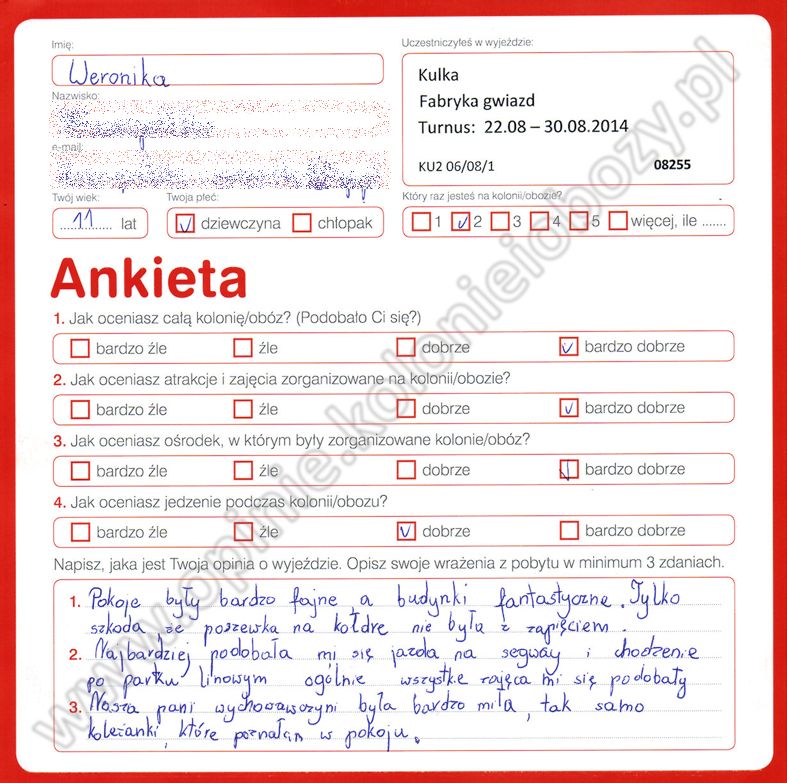 Imię:
Uczestniczyłeś w wyjeździe:
Weronika
Kulka
Fabryka gwiazd
Turnus: 22.08 – 30.08.2014
KU2 06/08/1 08255
Nazwisko:
e-mail:
Twój wiek:
Twoja płeć:
Który raz jesteś na kolonii/obozie?
11 lat
dziewczyna chłopak
1 2 3 4 5 więcej, ile .......
Ankieta
1. Jak oceniasz całą kolonię/obóz? (Podobało Ci się?)
bardzo źle źle dobrze bardzo dobrze
2. Jak oceniasz atrakcje i zajęcia zorganizowane na kolonii/obozie?
bardzo źle źle dobrze bardzo dobrze
3. Jak oceniasz ośrodek, w którym były zorganizowane kolonie/obóz?
bardzo źle źle dobrze bardzo dobrze
4. Jak oceniasz jedzenie podczas kolonii/obozu?
bardzo źle źle dobrze bardzo dobrze
Napisz, jaka jest Twoja opinia o wyjeździe. Opisz swoje wrażenia z pobytu w minimum 3 zdaniach.
1. Pokoje były bardzo fajne, a budynki fantastyczne. Tylko
szkoda, że poszewka na kołdre nie była z zapięciem.
2. Najbardziej podobała mi się jazda na segway i chodzenie
po parku linowym ogólnie wszystkie zajęca mi się podobały
3. Nasza pani wychowawczyni była bardzo miła, tak samo
koleżanki, które poznałam w pokoju.
www.opinie.kolonieiobozy.pl